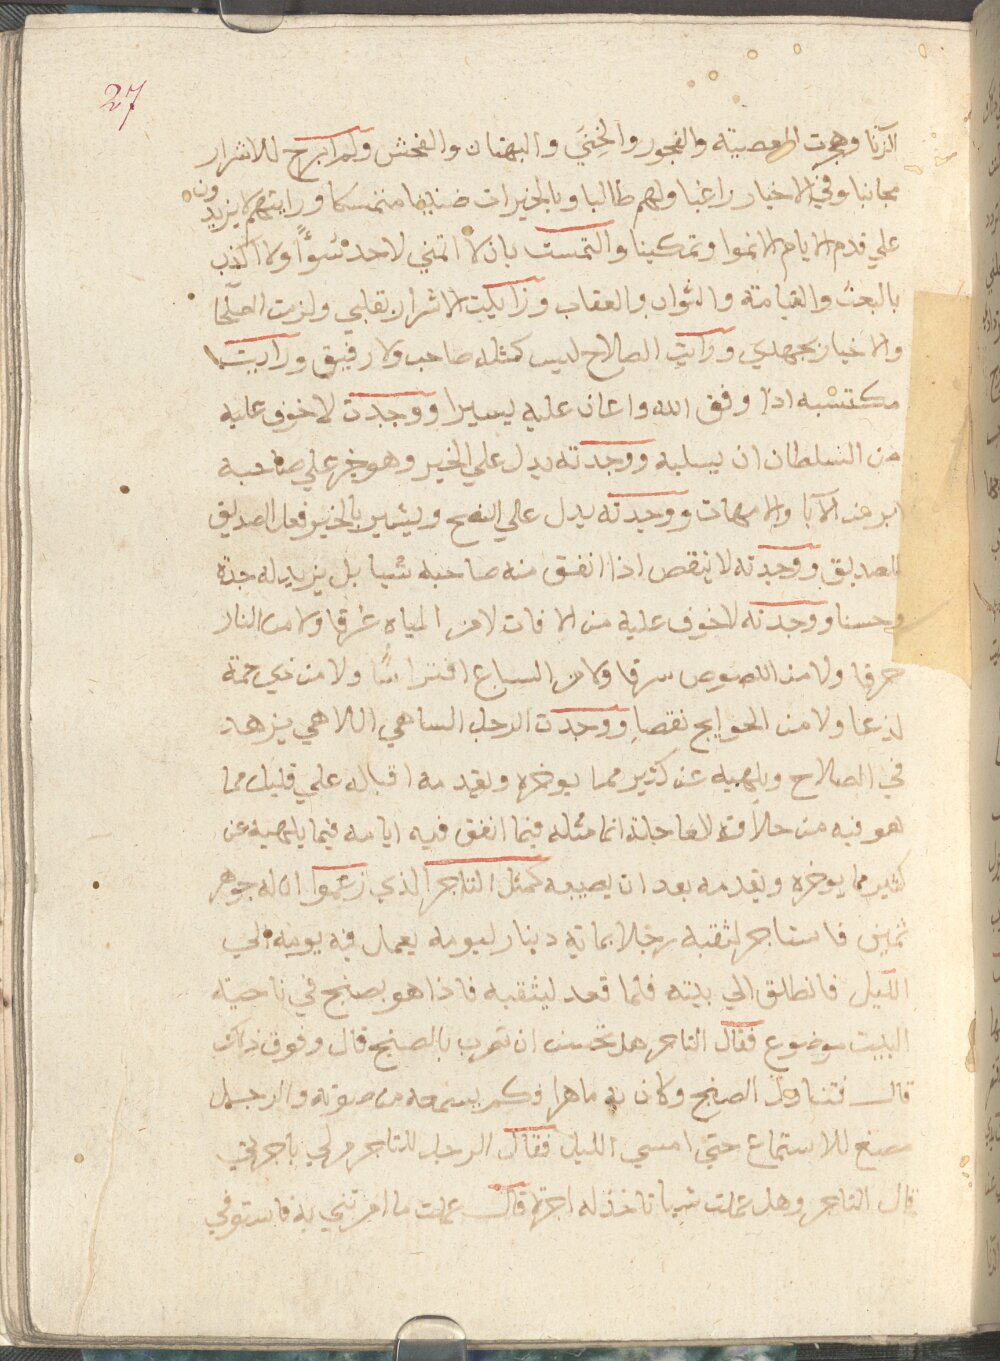 27
الزنا وهجرت المعصيته والفجور والخنَي والبهتان والفحش ولم ابرح للاشرار
مجانبا وفي الاخيار راغبا ولهم طالبا وبالخيرات ضنينا متمسكا ورايتهم لا يزيدون
علي قدم الايام الا نموا وتمكينا والتمست بان لا اتمني لاحد سُوًا ولا اكذب
بالبعث والقيامتة والثواب والعقاب وزايلت الاشرار بقلبي ولزمت الصلحا
والاخيار بجهدي ورايت الصلاح ليس كمثله صاحب ولا رفيق ورايت
مكتسبه اذا وفق الله واعان عليه يسيرا ووجدت لا خوف عليه
من السلطان ان يسلبه ووجدته يدل علي الخير وهو خير علي صاحبه
ابر من الابا والامهات ووجدته يدل عالي النصح ويشير بالخير فعل الصديق
للصديق ووجدته لا ينقص اذا انفق منه صاحبه شيا بل يزيد له جدة
وحسنا ووجدته لا خوف عليه من الافات لا من المياه غرقا ولا من النار
حرقا ولا من اللصوص سرقا ولا من السباع افتراسًا ولا من ذي حمة
لدغا ولا من الحوايج نقصا ووجدت الرجل الساهي اللاهي يزهد
في الصلاح ويلهيه عن كثير مما يوخره ويقدمه اقباله علي قليل مما
هو فيه من حلاوة العاجلة انما مثله فيما انفق فيه ايامه فيما يلهيه عن
كثير مما يوخره ويقدمه بعد ان يصيبه كمثل التاجر الذي زعموا ان له جوهر
ثمين فاستاجر لثقبه رجلا بماية دينار ليومه يعمل فيه يومه الي
الليل فانطلق الي بيته فلما قعد ليثقبه فاذا هو بصنج في ناحية
البيت موضوع فقال التاجر هل تحسن ان تضرب بالصنج قال وفوق ذلك
قال فتناول الصنج وكان به ماهرا فلم يسمعه من صوته والرجل
مصغ للاستماع حتي امسي الليل فقال الرجل للتاجر مر لي باجرتي
قال التاجر وهل عملت شيا تاخذ له اجرة قال عملت ما امرتني به فاستوفي